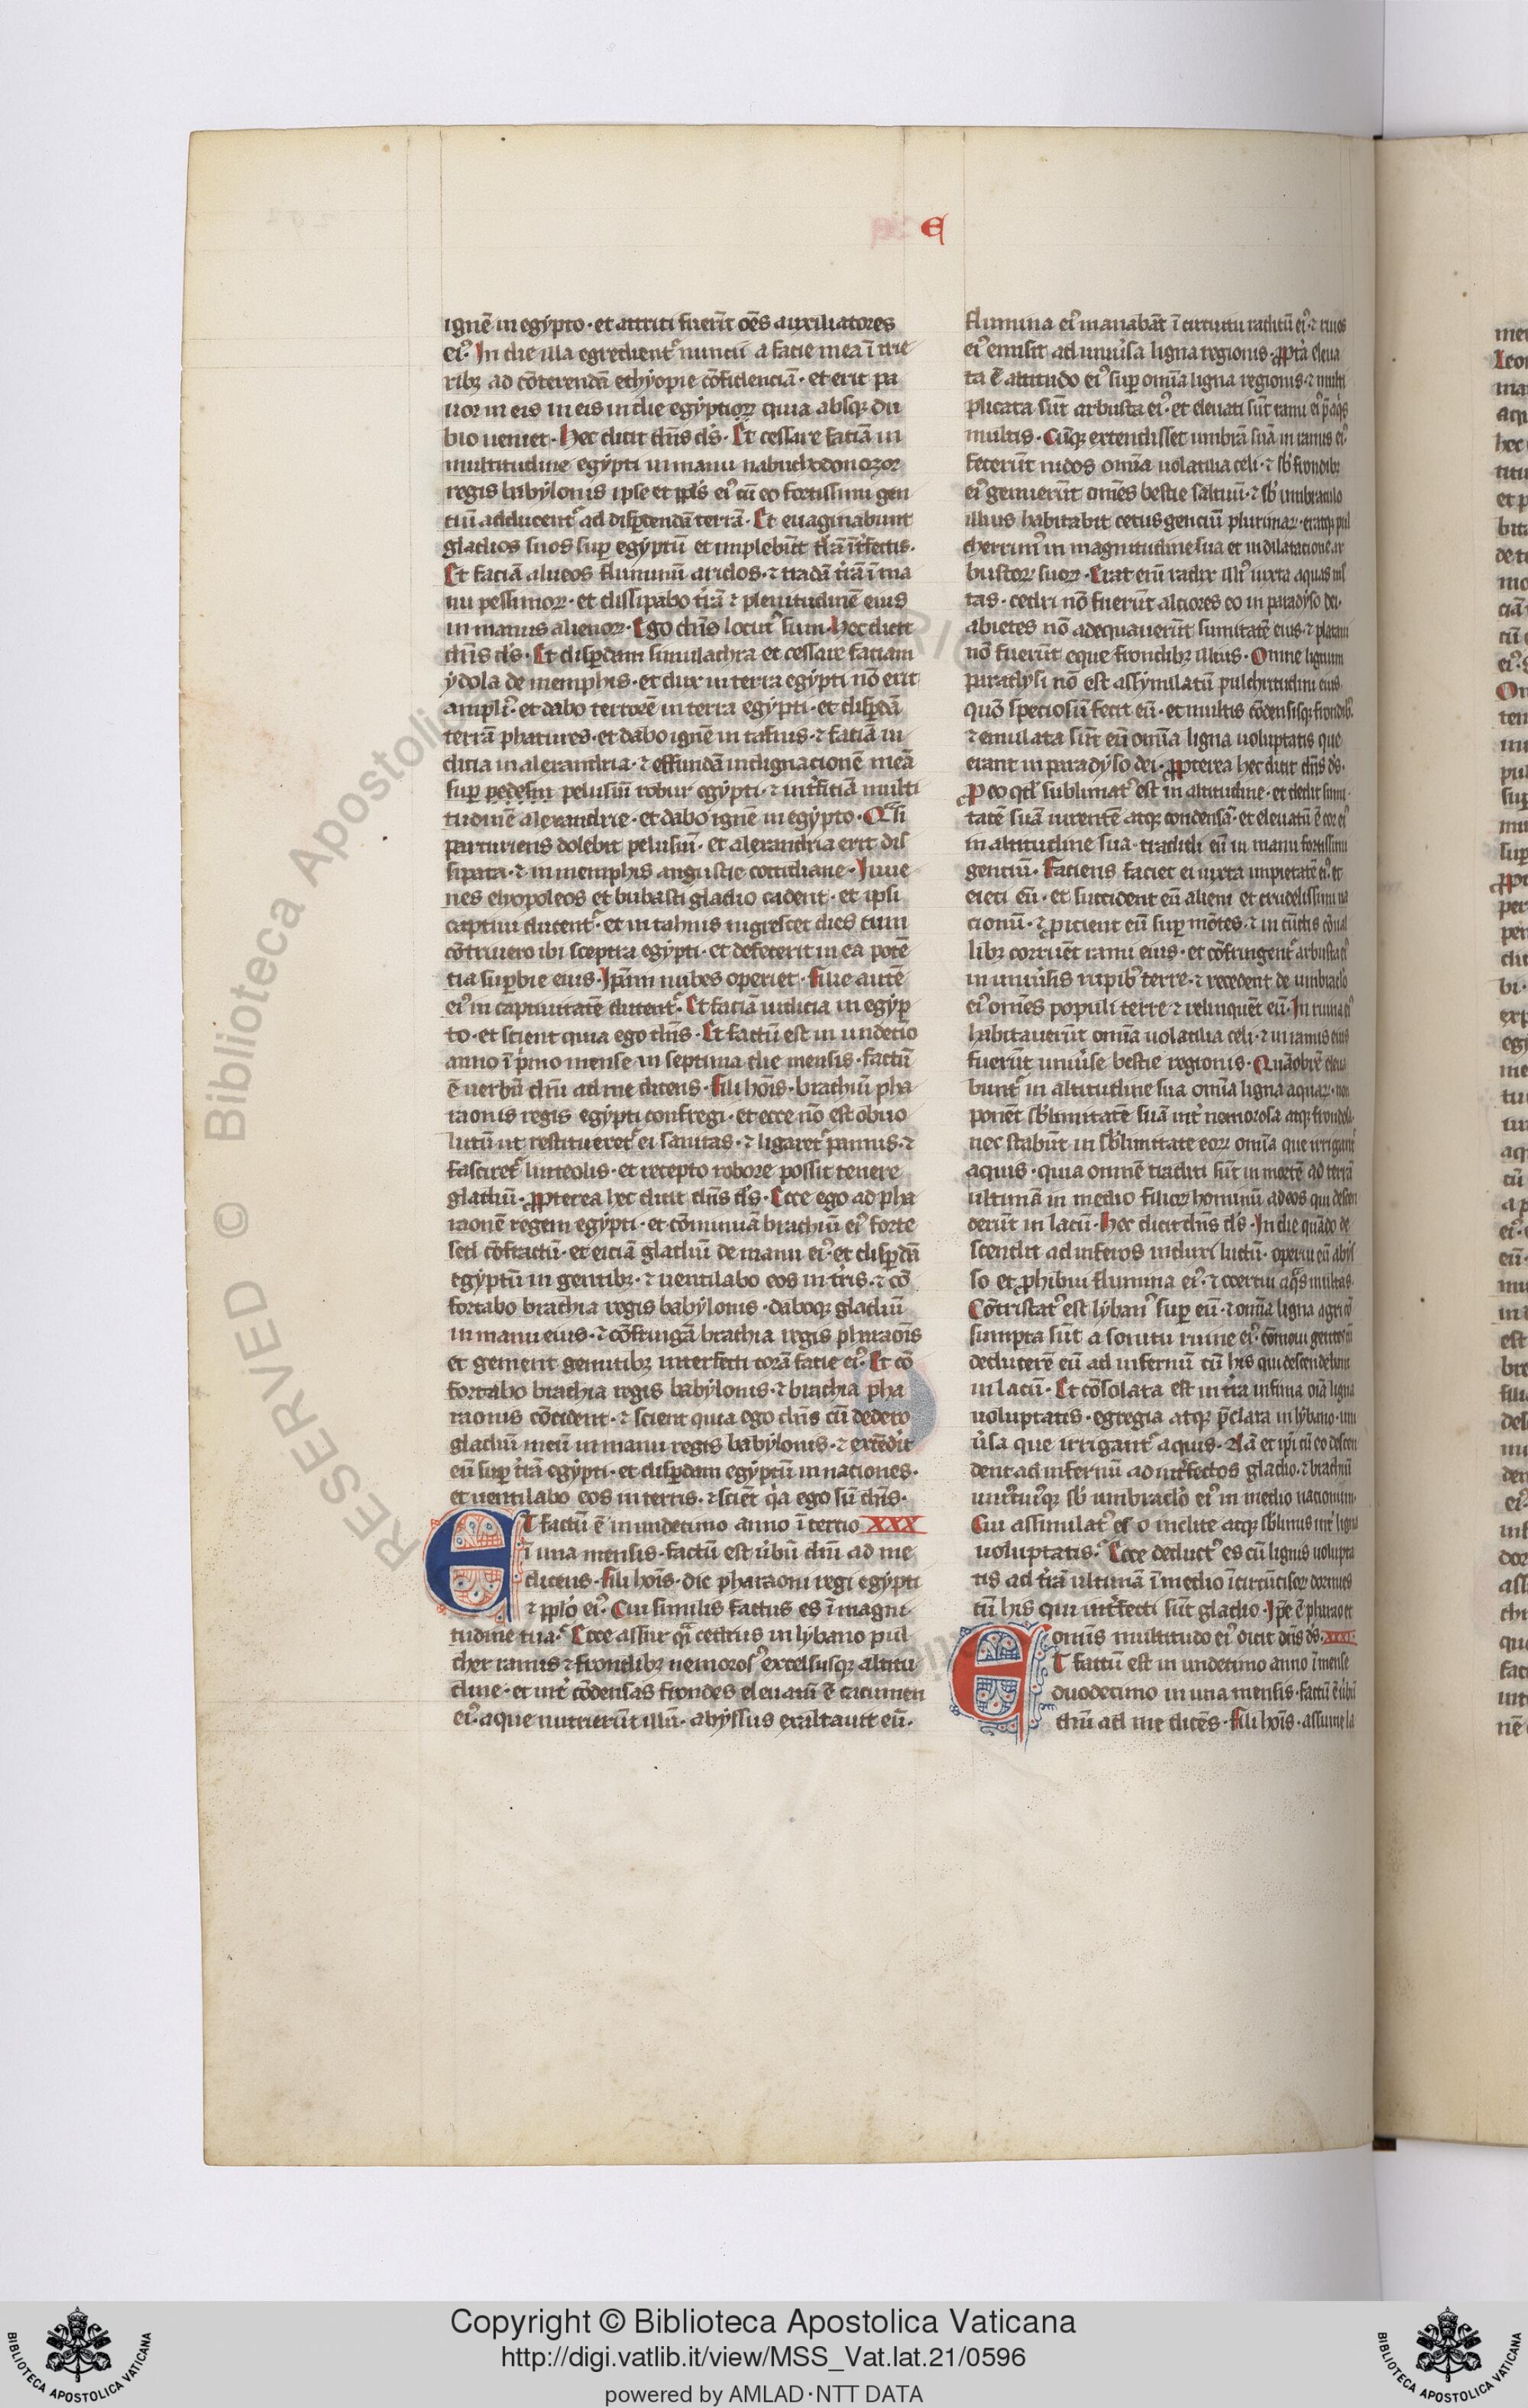 E
ignē in egypto · et attriti fuerīt oēs auxiliatores
eiꝰ. In die illa egredientᷣ nuncii a facie mea ī trie
ribꝫ ad cōterendā ethyopie cōfidenciā · et erit pa
uor in eis in eis in die egyptioꝝ quia absqꝫ du
bio ueniet · Hec dicit dn̄s ds̄ · Et cessare faciā in
multitudine egypti in manu nabuchodonozor
regis babylonis ipse et ppl̄s eiꝰ cū eo fortissimi gen
tiū adducentᷣ ad disꝑdendā terrā · Et euaginabunt
gladios suos suꝑ egyptū et implebūt t̄rā īt̄fectis ·
Et faciā alueos fluminū aridos · ⁊ tradā t̄rā ī ma
nu pessimoꝝ · et dissipabo t̄rā ⁊ plenitudinē eius
in manus alienoꝝ · Ego dn̄s locutꝰ sum · Hec dicit
dn̄s ds̄ · Et disꝑdam simulachra et cessare faciam
ydola de memphis · et dux in terra egypti nō erit
ampliꝰ · et dabo terrorē in terra egypti · et disꝑdā
terrā phatures · et dabo ignē in tafnis · ⁊ faciā iu
dicia in alexandria · ⁊ effundā indignacionē meā
suꝑ pedesin pelusiū robur egypti · ⁊ int̄ficiā multi
tudinē alexandrie · et dabo ignē in egypto · Qᷓsi
parturiens dolebit pelusiū · et alexandria erit dis
sipata · ⁊ in memphis angustie cottidiane · Iuue
nes elyopoleos et bubasti gladio cadent · et ipsi
captiui ducentᷣ · et in tafnis nigrescet dies cum
cōtriuero ibi sceptra egypti · et defecerit in ea potē
tia suꝑbie eius · Ip̄am nubes operiet · filie autē
eiꝰ in captiuitatē ducentᷣ · Et faciā iudicia in egyp
to · et scient quia ego dn̄s · Et factū est in undecio
anno ī p̄mo mense in septima die mensis · factū
ē uerbū dn̄i ad me dicens · Fili hoīs · brachiū pha
raonis regis egypti confregi · et ecce nō est obuo
lutū ut restituerctᷣ ei sanitas · ⁊ ligaretᷣ pannis · ⁊
fasciretᷣ linteolis · et recepto robore possit tenere
gladiū · ꝓpterea hec dicit dn̄s ds̄ · Ecce ego ad pha
raonē regem egypti · et cōminuā brachiū eiꝰ forte
sed cōfractū · et eiciā gladiū de manu eiꝰ · et disꝑdā
egyptū in gentibꝫ · ⁊ uentilabo eos in t̄ris · ⁊ cō
fortabo brachia regis babylonis · daboqꝫ gladiū
in manu eius · ⁊ cōfringā brachia regis pharaoīs
et gement gemitibꝫ interfecti corā facie eiꝰ · Et cō
fortabo brachia regis babylonis · ⁊ brachia pha
raonis cōcident · ⁊ scient quia ego dn̄s cū dedero
gladiū meū in manu regis babylonis · ⁊ extēdit
eū suꝑ t̄rā egypti · et disꝑdam egyptū in nationes ·
et uentilabo eos in terris · ⁊ sciēt q̇a ego sū dn̄s ·
Et factū ē in undecimo anno ī tercio XXX
ī una mensis · factū est ūbū dn̄i ad me
dicens · Fili hoīs · dic pharaoni regi egypti
⁊ pplō eiꝰ · Cui similis factus es ī magni
tudine tua · Ecce assur qᷓ cedrus in lybano pul
cher ramis ⁊ frondibꝫ nemorosꝰ excelsusqꝫ altitu
dine · et int̄ cōdensas frondes eleuatū ē cacumen
eiꝰ aque nutrierūt illū · abyssus exaltauit eū ·
flumina eiꝰ manabāt ī circuitu radicū eiꝰ · ⁊ riuos
eiꝰ emisit ad uniūsa ligna regionis · ꝓpt̄a eleua
ta ē altitudo eiꝰ suꝑ omīa ligna regionis · ⁊ multi
plicata sūt arbusta eiꝰ · et eleuati sūt rami eiꝰ p̄ aq̄s
multis · Cūqꝫ extendisset umbrā suā in ramis eiꝰ
fecerūt nidos omīa uolatilia celi · ⁊ sb̄ frondibꝫ
eiꝰ genuerūt omēs bestie saltuū · ⁊ sb̄ umbraculo
illius habitabit cetus genciū plurimaꝝ · eratqꝫ pul
cherrimꝰ in magnitudine sua et in dilatacione ar
bustoꝝ suoꝝ · Erat enī radix illiꝰ iuxta aquas ml̄
tas · cedri nō fuerūt alciores eo in paradyso dei ·
abietes nō adequauerūt sumitatē eius · ⁊ platani
nō fuerūt eque frondibꝫ illius · Omne lignum
paradysi nō est assymilatū pulchritudini eius
quō speciosū feci eū · et multis cōdensisqꝫ frondibꝫ ·
⁊ emulata sūt eū omīa ligna uoluptatis que
erant in paradyso dei · ꝓpterea hec dicit dn̄s ds̄ ·
ꝓ eo qd̄ sublimatꝰ est in altitudine · et dedit sumi
tatē suā uirentē atqꝫ condensā · et eleuatū ē cor eiꝰ
in altitudine sua · tradidi eū in manu fortissimi
genciū · Faciens faciet ei iuxta impietatē eiꝰ · et
eieci eū · et succident eū alieni et crudelissimi na
cionū · ⁊ ꝓicient eū suꝑ mōtes · ⁊ in cūctis cōual
libꝫ corruēt rami eius · et cōfringentᷣ arbusta eiꝰ
in uniūsis rupibꝰ terre · ⁊ recedent de umbraclo
eiꝰ omēs populi terre ⁊ relinquēt eū · In ruina eiꝰ
habitauerūt omīa uolatilia celi · ⁊ in ramis eius
fuerūt uniūse bestie regionis · Quāobrē eleua
buntᷣ in altitudine sua omīa ligna aquaꝝ · nec
ponēt sb̄limitatē suā int̄ nemorosa atqꝫ frondosa ·
nec stabūt in sb̄limitate eoꝝ omīa que irrigantᷣ
aquis · quia omnē traditi sūt in mortē ad terrā
ultimā in medio filioꝝ hominū ad eos qui descen
derūt in lacū · Hec dicit dn̄s ds̄ · In die quādo de
scendit ad inferos induxi luctū · operui eū abys
so et ꝓhibui flumina eiꝰ · ⁊ coercui aqᷓs multas ·
Cōtristatꝰ est lybanꝰ suꝑ eū · ⁊ omīa ligna agri cō
sumpta sūt a sonitu ruine eiꝰ · cōmoui gentes cū
deducerē eū ad infernū cū his qui descendebant
in lacū · Et cōsolata est in t̄ra infima oīa ligna
uoluptatis · egregia atqꝫ p̄clara in lybano · uni
ūsa que irrigantᷣ aquis · Nā et ip̄i cū eo descen
dent ad infernū ad int̄fectos gladio · ⁊ brachiū
uniꝰcuiꝰqꝫ sb̄ umbraclō eiꝰ in medio nacionum ·
Cui assimilatꝰ es o inclite atqꝫ sb̄limis int̄ ligna
uoluptatis · Ecce deductꝰ es cū lignis uolupta
tis ad t̄rā ultimā ī medio īcircūcisoꝝ dormies
cū his qui int̄fecti sūt gladio · Ip̄e ē pharao et
omīs multitudo eiꝰ dicit dn̄s ds̄ · XXXI ·
Et factū est in undecimo anno ī mense
duodecimo in una mensis · factū ē ūbū
dn̄i ad me dicēs · Fili hoīs · assume la
RESERVED © Biblioteca Apostolica
Copyright © Biblioteca Apostolica Vaticana
http://digi.vatlib.it/view/MSS_Vat.lat.21/0596
powered by AMLAD·NTT DATA
BIBLIOTECA APOSTOLICA VATICANA
BIBLIOTECA APOSTOLICA VATICANA